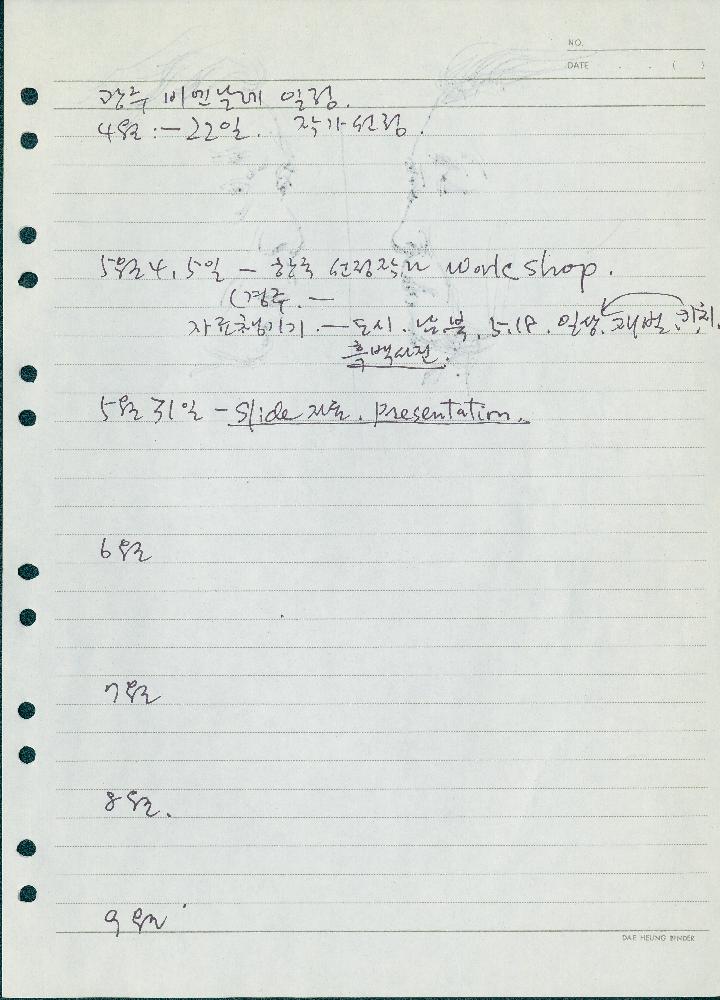 NO.
DATE . . ( )
광주 비엔날레 일정.
4월 : — 22일. 작가선정.
5월 4, 5일 — 한국 선정작가 workshop.
(경주. —
자료챙기기. — 도시. 남북. 5.18. 일상. 재벌. 키치.
흑백사진.
5월 31일 — Slide 자료. presentation.
6월
7월
8월.
9월
DAE HEUNG BINDER